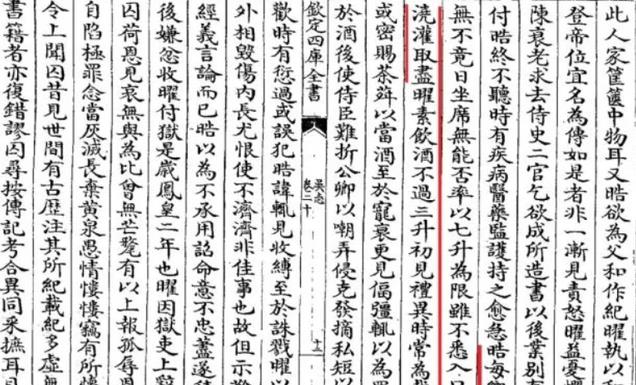 此人家筐篋中物耳又皓欲為父和作紀曜執以和
登帝位宜名為傳如是者非一漸見責怒曜益憂
陳衰老求去侍史二官乞欲成所造書以後業別
付皓終不聽時有疾病醫藥監護持之愈急皓每
無不竟日坐席無能否率以七升為限雖不悉入口
澆灌取盡曜素飲酒不過三升初見禮異時常為
或密賜茶荈以當酒至於寵衰更見偪彊輒以為
於酒後使侍臣難折公卿以嘲弄侵克發摘私短以
欽定四庫全書
吳志
卷二十
十三
歡時有愆過或誤犯皓諱輒見收縛至於誅戮曜以
外相毀傷內長尤恨使不濟濟非佳事也故但示難
經義言論而已皓以為不承用詔命意不忠蓋遂積
後嫌忿收曜付獄是歲鳳皇二年也曜因獄吏上辭
囚荷恩見哀無與為比曾無芒氂有以上報孤辱恩
自陷極罪念當灰滅長棄黃泉愚情慺慺竊有所懷
令上聞囚昔見世間有古歷注其所紀載紀多虛無
書籍者亦復錯謬囚尋按傳記考合異同采摭耳目